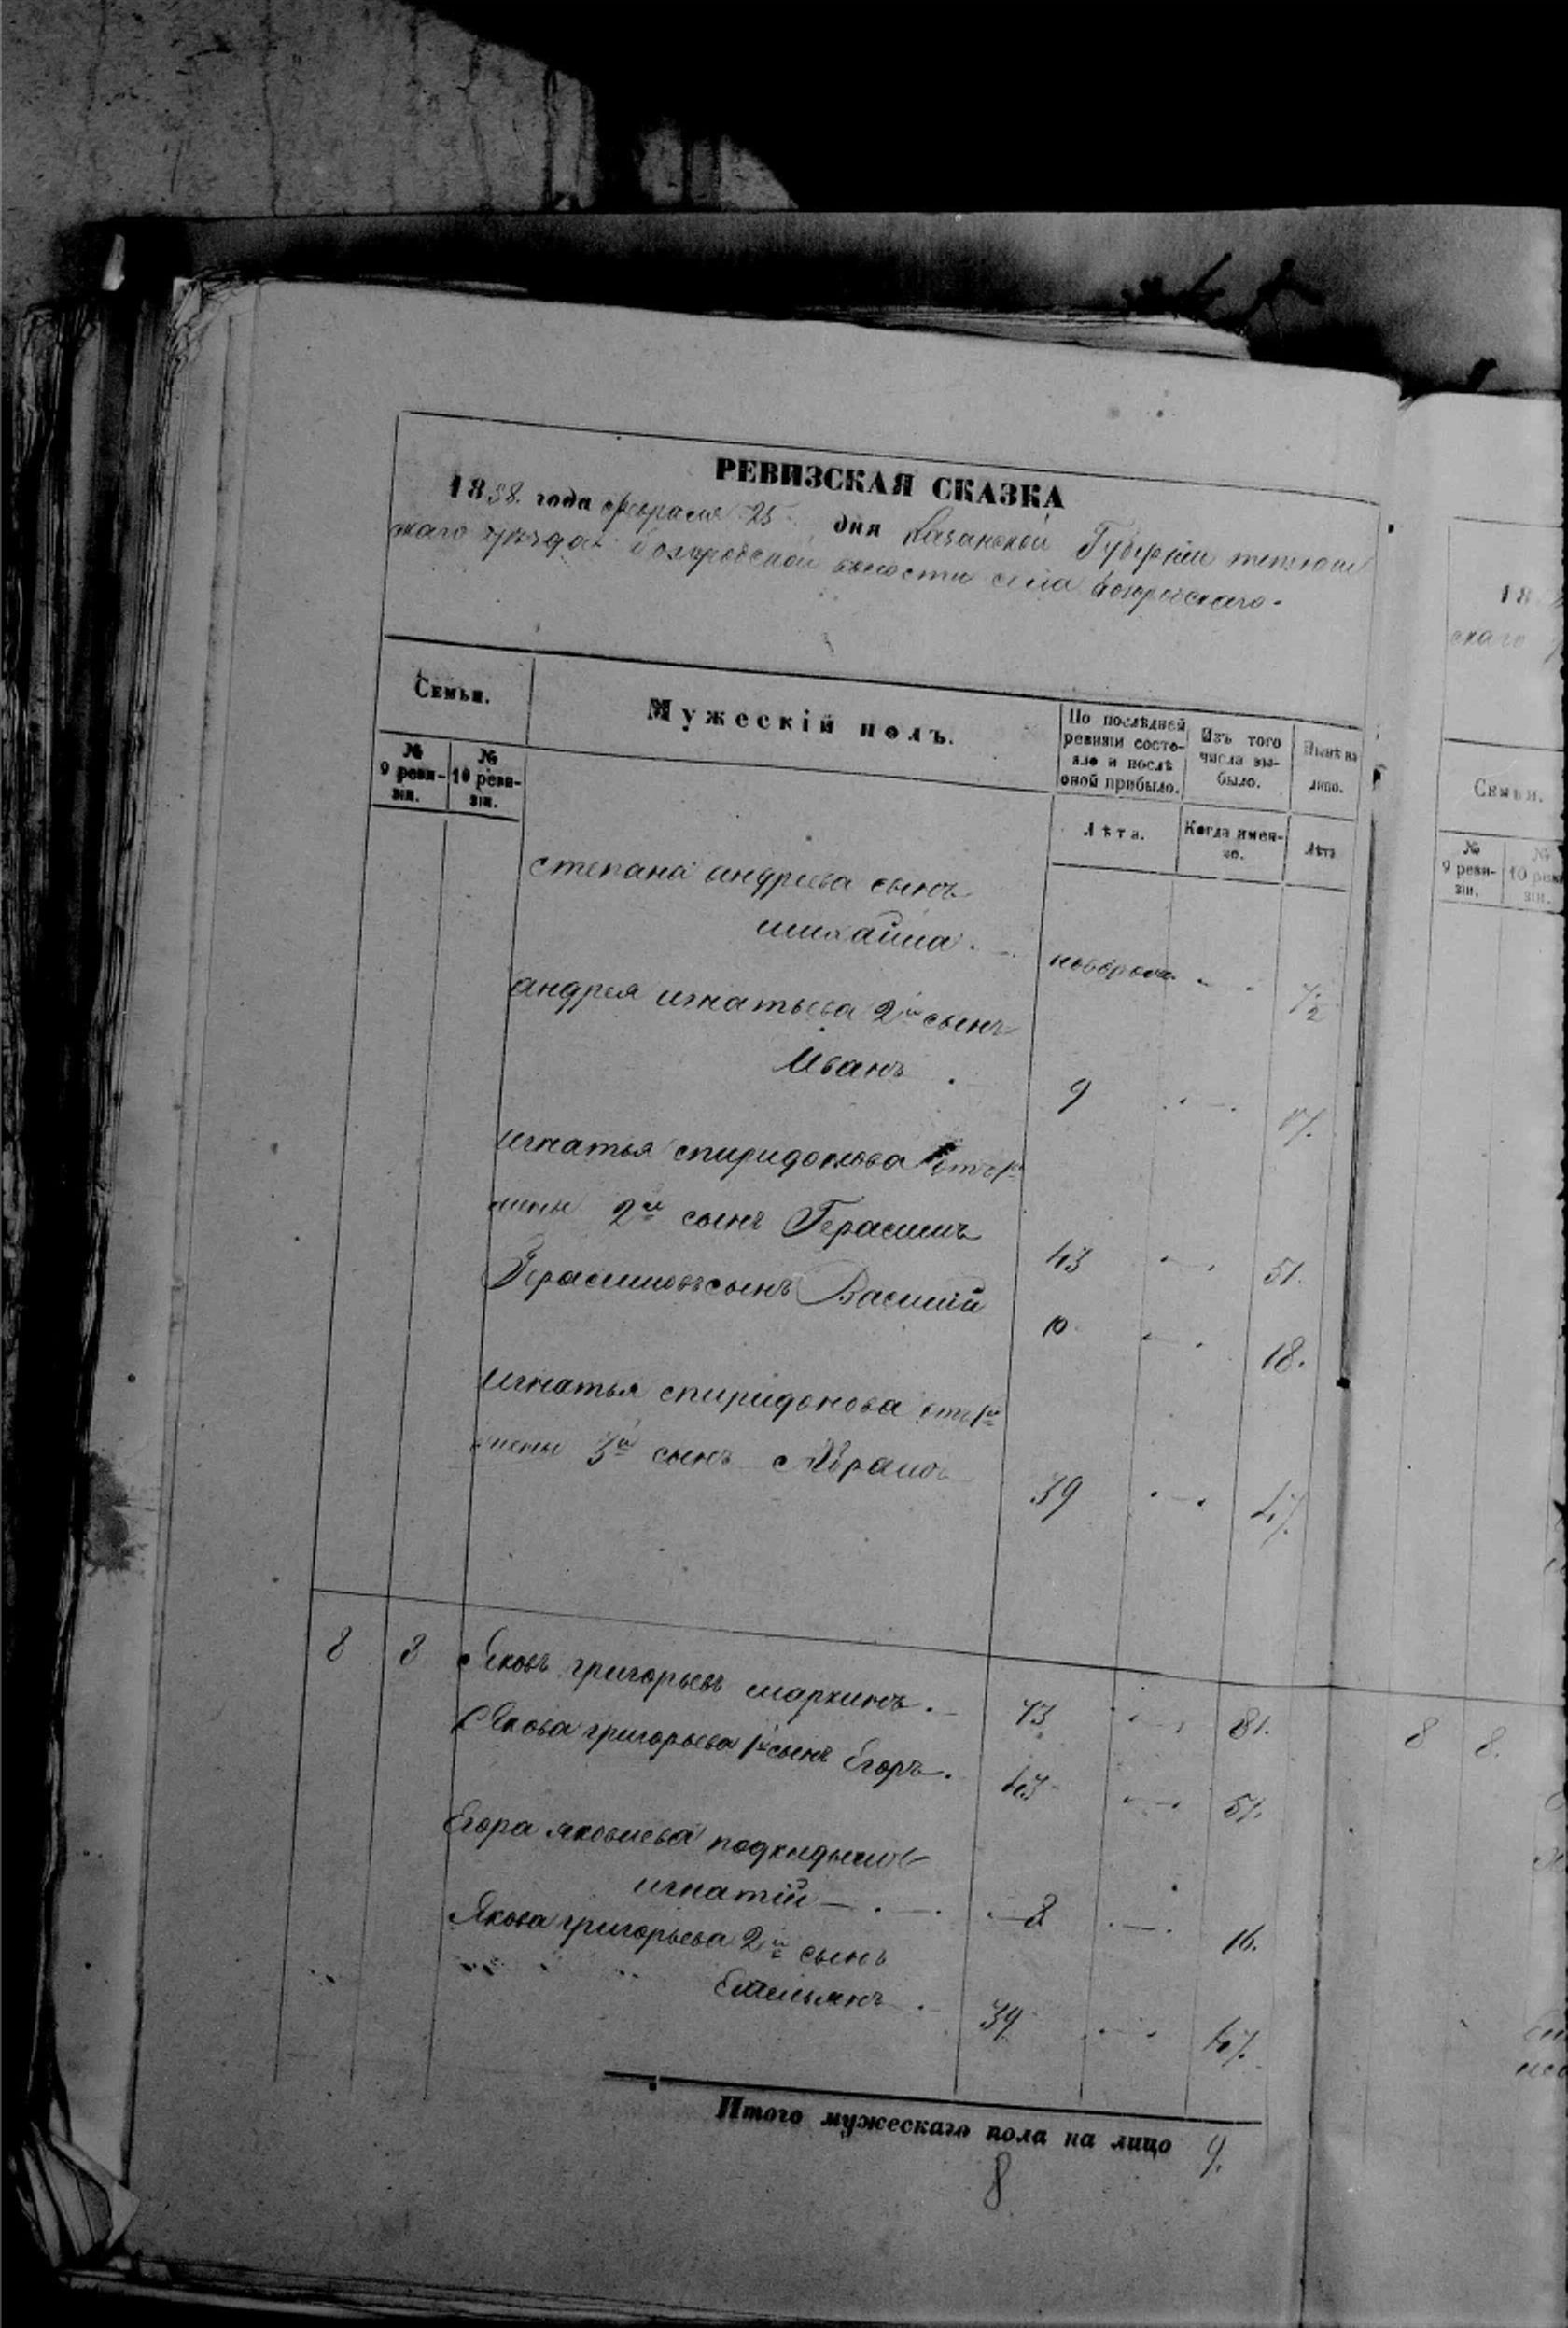 РЕВИЗСКАЯ СКАЗКА
1858. года февраля 25 дня Казанской Губернии тетюш
скаго уѣзда волости села
Семьи.
Мужескій полъ.
По послѣдней ревизіи состо-
яло и послѣ
оной прибыло.
Изъ того
числа вы-
было.
Нынѣ на
лицо.
№
9 реви-
зіи.
№
10 реви-
зіи.
Лѣта.
Когда имен-
но.
Лѣта
степана андреева сынъ
михайла. новорож. 1/2
андрея игнатьева 2й сынъ
Иванъ. 9 17.
игнатья спиридонова отъ 1й
жены 2й сынъ Герасимъ 43 51.
Герасимовъ сынъ Василій 10 18.
игнатья спиридонова отъ 1й
жены 3й сынъ Абрамъ 39 47.
8 8 Яковъ григорьевъ маркинъ. 73 81.
Якова григорьева 1й сынъ Егоръ. 43 51.
Егора яковлева подкидышъ
игнатій 8 16.
Якова григорьева 2й сынъ
Емельянъ. 39 47.
Итого мужескаго пола на лицо 9.
8
18
скаго
Семьи.
№
9 реви-
зіи.
№
10 реви
зіи.
8 8.